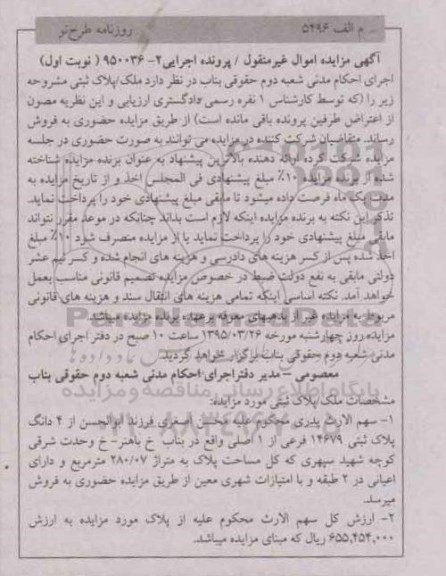 م الف ۵۴۹۶
روزنامه طرح‌نو
آگهی مزایده اموال غیرمنقول / پرونده اجرایی۲- ۹۵۰۰۳۶ ( نوبت اول)
اجرای احکام مدنی شعبه دوم حقوقی بناب در نظر دارد ملک/پلاک ثبتی مشروحه
زیر را (که توسط کارشناس ۱ نفره رسمی دادگستری ارزیابی و این نظریه مصون
از اعتراض طرفین پرونده باقی مانده است) از طریق مزایده حضوری به فروش
رساند. متقاضیان شرکت کننده در مزایده می توانند به صورت حضوری در جلسه
مزایده شرکت کرده ارائه دهنده بالاترین پیشنهاد به عنوان برنده مزایده شناخته
شده از برنده مزایده ۱۰٪ مبلغ پیشنهادی فی المجلس اخذ و از تاریخ مزایده به
مدت یک ماه فرصت داده میشود تا مابقی مبلغ پیشنهادی خود را پرداخت نماید.
تذکر این نکته به برنده مزایده اینکه لازم است بداند چنانکه در موعد مقرر نتواند
مابقی مبلغ پیشنهادی خود را پرداخت نماید یا از مزایده منصرف شود ۱۰٪ مبلغ
اخذ شده پس از کسر هزینه های دادرسی و هزینه های انجام شده و کسر نیم عشر
دولتی مابقی به نفع دولت ضبط در خصوص مزایده تصمیم قانونی مناسب بعمل
خواهد آمد. نکته اساسی اینکه تمامی هزینه های انتقال سند و هزینه های قانونی
مربوط به مزایده غیر از بدهیهای معوقه برعهده برنده مزایده میباشد.
مزایده روز چهارشنبه مورخه ۱۳۹۵/۰۳/۲۶ ساعت ۱۰ صبح در دفتر اجرای احکام
مدنی شعبه دوم حقوقی بناب برگزار خواهد گردید.
معصومی – مدیر دفتراجرای احکام مدنی شعبه دوم حقوقی بناب
مشخصات ملک/پلاک ثبتی مورد مزایده:
۱- سهم الارث پدری محکوم علیه محسن اصغری فرزند ابوالحسن از ۴ دانگ
پلاک ثبتی ۱۴۶۷۹ فرعی از ۱ اصلی واقع در بناب خ باهنر- خ وحدت شرقی
کوچه شهید سپهری که کل مساحت پلاک به متراژ ۲۸۰/۰۷ مترمربع و دارای
اعیانی در ۲ طبقه و با امتیازات شهری معین از طریق مزایده حضوری به فروش
میرسد.
۲- ارزش کل سهم الارث محکوم علیه از پلاک مورد مزایده به ارزش
۶۵۵,۴۵۴,۰۰۰ ریال که مبنای مزایده میباشد.
ParsNamadData
پایگاه اطلاع رسانی مناقصه و مزایده